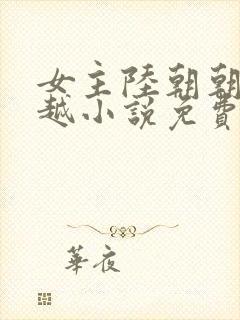 女主陸朝朝
越小説免費
華夜